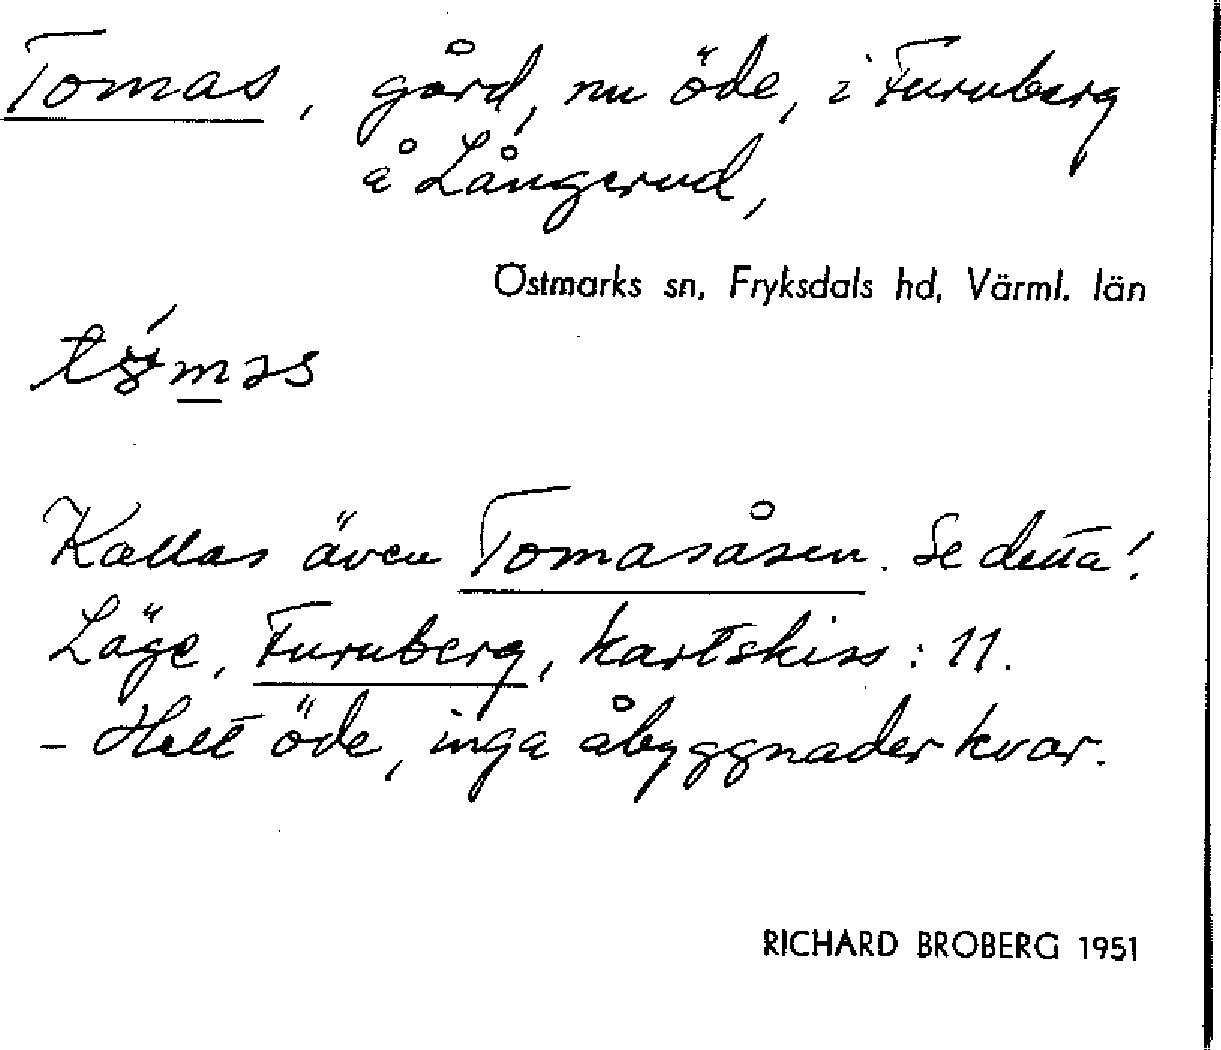 Tomas, gård, nu öde, i Furuberg
å Långerud,
Östmarks sn, Fryksdals hd, Värml. län
Kallas även Tomasåsen. Se detta!
Läge, Furuberg, kartskiss: 11.
- Helt öde, inga åbyggnader kvar.
RICHARD BROBERG 1951